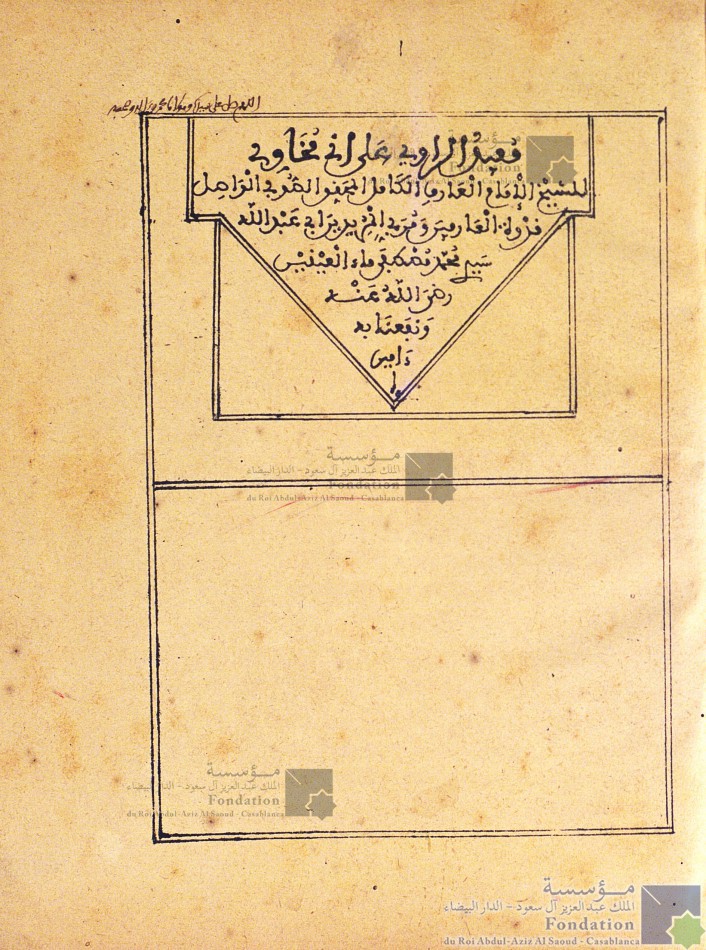 اللهم صل على سيدنا ومولانا محمد وءاله وصحبه
مفيد الراوي على أني مخاوي
للشيخ الإمام العارف الكامل المحقق المربي الواصل
قدوة العارفين ومربي المريدين أبي عبد الله
سيدي محمد مصطفى ماء العينين
رضي الله عنه
ونفعنا به
ءامين
مؤسسة
الملك عبد العزيز آل سعود - الدار البيضاء
Fondation
du Roi Abdul-Aziz Al Saoud - Casablanca
مؤسسة
الملك عبد العزيز آل سعود - الدار البيضاء
Fondation
du Roi Abdul-Aziz Al Saoud - Casablanca
مؤسسة
الملك عبد العزيز آل سعود - الدار البيضاء
Fondation
du Roi Abdul-Aziz Al Saoud - Casablanca